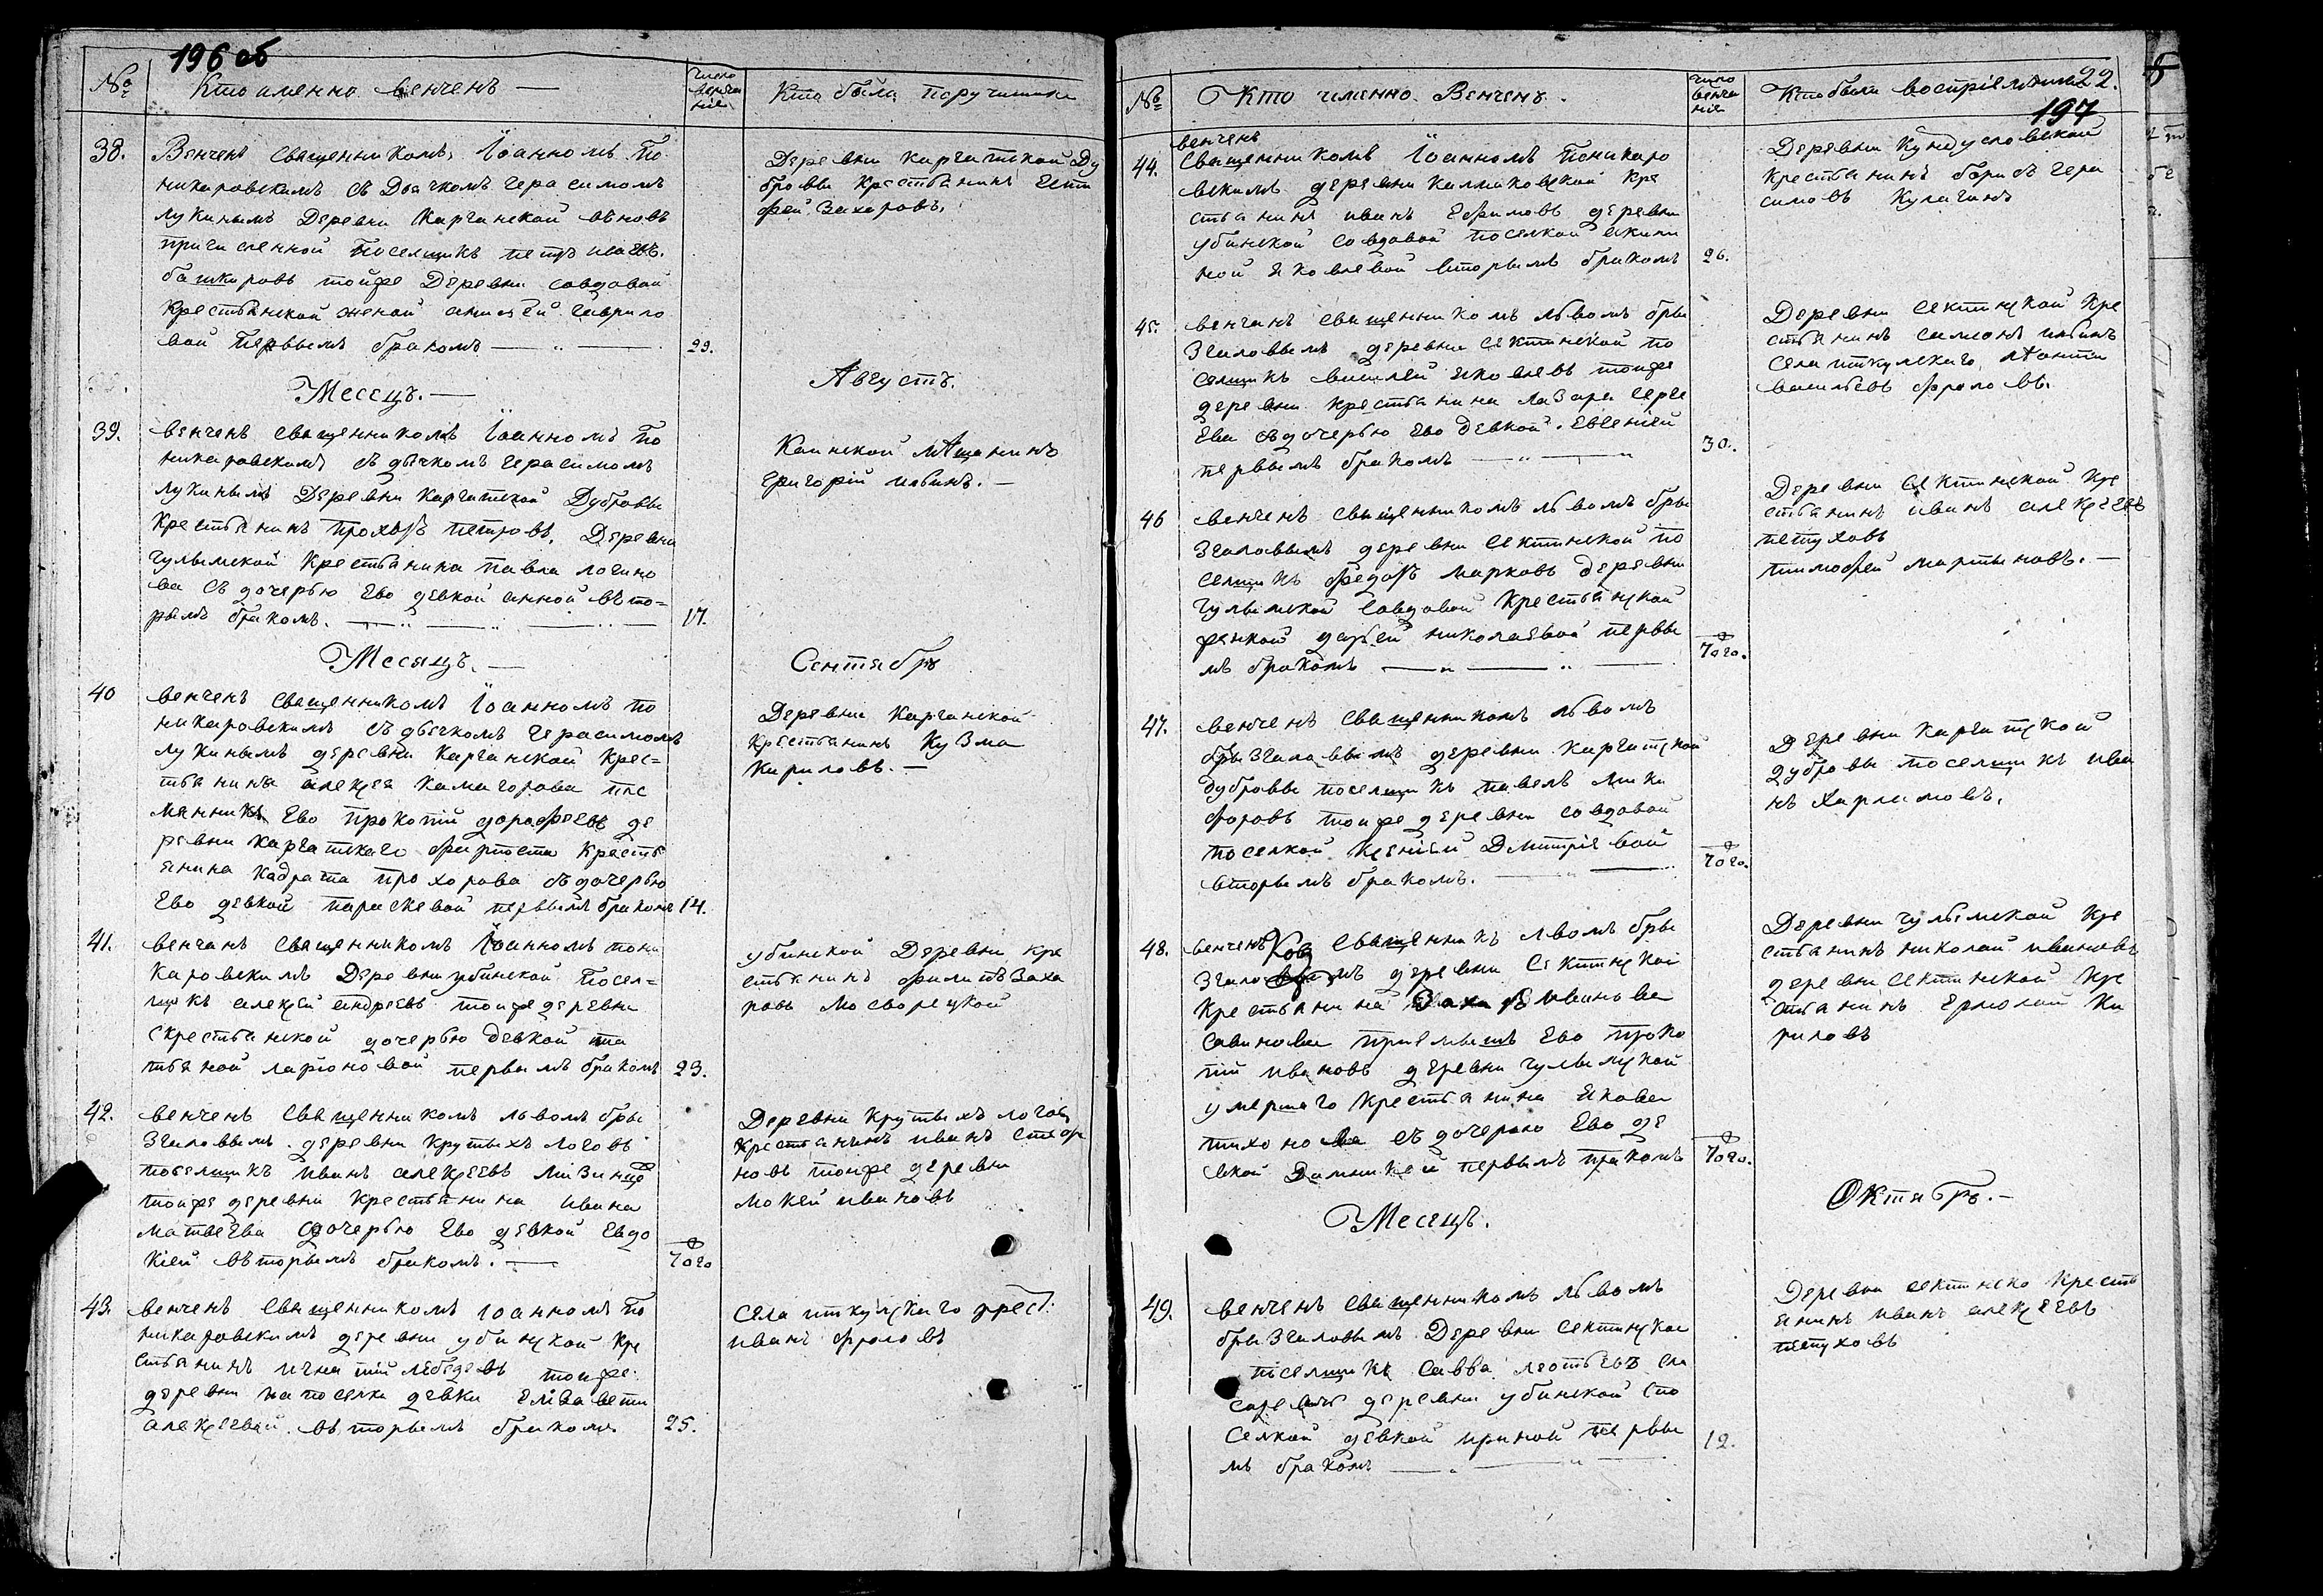 196 об
№ Кто именно венченъ — число венчанiе Кто были поручители
38. Венченъ священникомъ Iоанномъ По
никаровскимъ съ Дьячкомъ Герасимомъ
Лукинымъ Деревни Каргатской вьновь
причисленной Поселщикъ петръ
башкировъ тойже Деревни совдовой
Крестьянской женой Гаврило
вой Первымъ бракомъ — „ — 29.
Деревни каргатской Ду
бровы Крестьянинъ
Захаровъ.
Месецъ. — Августъ.
39. венченъ священникомъ Iоанномъ По
никаровскимъ съ дьячкомъ Герасимомъ
Лукинымъ Деревни Каргатской Дубровы
Крестьянинъ Прохоръ петровъ, Деревни
чулымской Крестьянина Павла логино
ва съ дочерью Ево девкой анной въто=
рымъ бракомъ. — 17.
Каинской мѣщанинъ
григорiй ильинъ. —
Месяцъ. — Сентябрь
40 венченъ священникомъ Iоанномъ по
никаровскимъ съ дьячкомъ Герасимомъ
Лукинымъ деревни Каргатской Крес=
тьянина алексея Камагорова пле
мянникъ Ево прокопiй дорофеевъ де
ревни каргатскаго форпоста Кресть
янина Кадрата прохорова съ дочерью
Ево девкой параскевой первымъ бракомъ 14.
Деревни Каргатской
крестьянинъ Кузма
Кириловъ. —
41. венчанъ священникомъ Iоанномъ пони
каровскимъ Деревни убинской Посел=
щикъ алексей андреевъ тойже деревни
скрестьянской дочерью девкой та
тьяной ларiоновой первымъ бракомъ 23.
убинской Деревни кре
стьянинъ филипъ Заха
ровъ Мосворецкой
42. венченъ священникомъ львомъ бры
згаловымъ деревни крутыхъ логовъ
поселщикъ иванъ алексеевъ
тойже деревни крестьянина ивана
матвеева сдочерью Ево девкой Евдо
кiей вьторымъ бракомъ. — того
Деревни Крутыхъ логовъ
крестьянинъ иванъ
новъ тойже деревни
мокей ивановъ
43. венченъ священникомъ Iоанномъ По
никаровскимъ деревни убинской кре
стьянинъ игнатiй лебедевъ тойже
деревни на поселки девки Елiзавети
алексеевой вьторымъ бракомъ 25.
Села иткулскаго крест:
иванъ фроловъ
22.
197
№ Кто именно Венченъ. число венчанiе Кто были воспрiемники
44. венченъ
священникомъ Iоанномъ Поникаро
вскимъ деревни калмаковской кре
стьянинъ иванъ Ефимовъ деревни
убинской совдовой поселкой акили
ной яковлевой вторымъ бракомъ 26.
Деревни Кундусловской
крестьянинъ борисъ гера
симовъ Кулагинъ
45. венчанъ священникомъ львомъ бры
згаловымъ деревни сектинской по
селщикъ василей яковлевъ тойже
деревни крестьянина лазаря серге
ева съ дочерью Ево девкой Евгенiей
первымъ бракомъ — „ — „ 30.
Деревни сектинской Кре
стьянинъ симионъ ильинъ
села иткулскаго
васильевъ фроловъ.
46 венченъ священникомъ львомъ бры
згаловымъ деревни сектинской по
селщикъ федоръ марковъ деревни
чулымской совдовой крестьянской
женкой дарьей николаевой первы
мъ бракомъ — „ — „ — того.
Деревни сектинской Кре
стьянинъ иванъ алексеевъ
петуховъ
тимофей мартыновъ. —
47. венченъ священникомъ львомъ
брызгаловымъ деревни каргатской
дубровы поселщикъ павелъ ники
форовъ тойже деревни совдовой
поселкой Ксенiей Дмитрiевой
вторымъ бракомъ. — того.
Деревни каргатской
дубровы поселщикъ ива
нъ харламовъ.
48. венченъ священникъ лвомъ бры
згаловымъ деревни сектинской
крестьянина Захара иванова
савинова прiемышъ Ево проко
пiй ивановъ деревни чулымской
умершаго крестьянина Якова
тихонова съ дочерью Ево де
вкой Домникей первымъ пракомъ того.
Деревни чулымской кре
стьянинъ николай ивановъ
деревни сектинской кре
стьянинъ Ермолай Ки
риловъ
Месецъ. Октябрь. —
49. венченъ священникомъ львомъ
брызгаловымъ Деревни сектинское
поселщикъ савва леотьевъ
деревни убинской спо
селкой девкой ириной первы
мъ бракомъ — 12.
Деревни сектинско кресть
янинъ иванъ алексеевъ
петуховъ